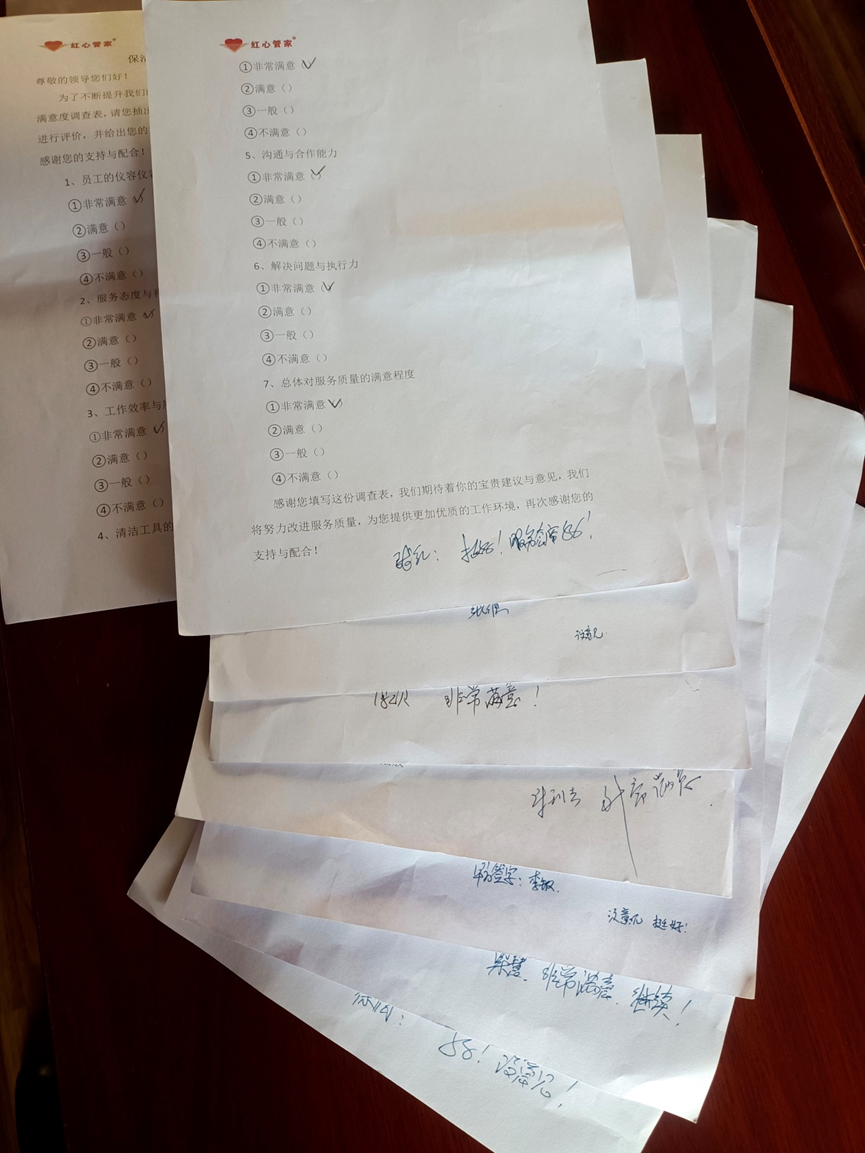 红心管家®
保洁
尊敬的领导您们好！
为了不断提升我们
满意度调查表，请您抽出
进行评价，并给出您的
感谢您的支持与配合！
1、员工的仪容仪
①非常满意
②满意（）
③一般（）
④不满意（）
2、服务态度与
①非常满意
②满意（）
③一般（）
④不满意（）
3、工作效率与
①非常满意
②满意（）
③一般（）
④不满意（）
4、清洁工具的
红心管家®
①非常满意
②满意（）
③一般（）
④不满意（）
5、沟通与合作能力
①非常满意（）
②满意（）
③一般（）
④不满意（）
6、解决问题与执行力
①非常满意
②满意（）
③一般（）
④不满意（）
7、总体对服务质量的满意程度
①非常满意
②满意（）
③一般（）
④不满意（）
感谢您填写这份调查表，我们期待着你的宝贵建议与意见，我们
将努力改进服务质量，为您提供更加优质的工作环境，再次感谢您的
支持与配合！
挺好！
没意见
非常满意！
签字：李敏
没意见 挺好！
非常满意 继续！
好！没意见！